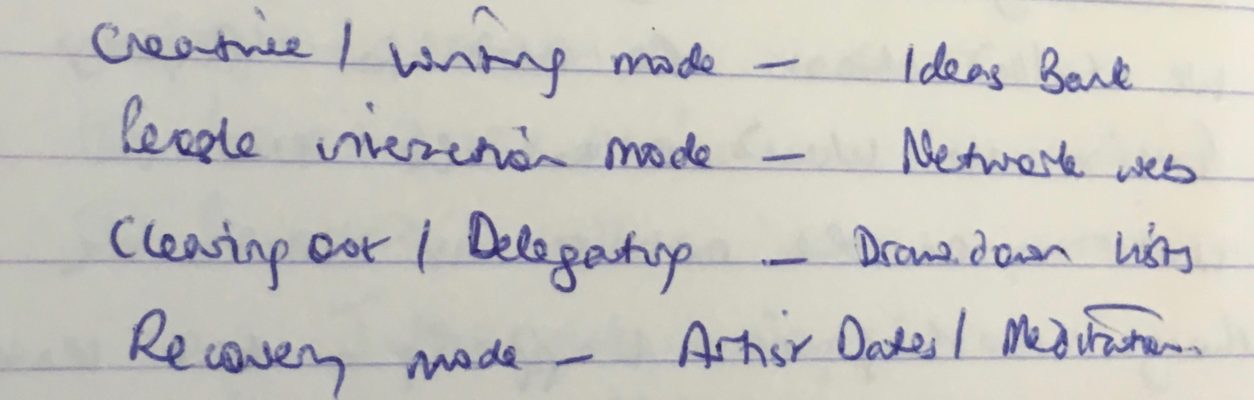 Creative / writing mode – Ideas Bank
People interaction mode – Network web
Clearing out / Delegating – Drawdown lists
Recovery mode – Artist Dates / Meditation.